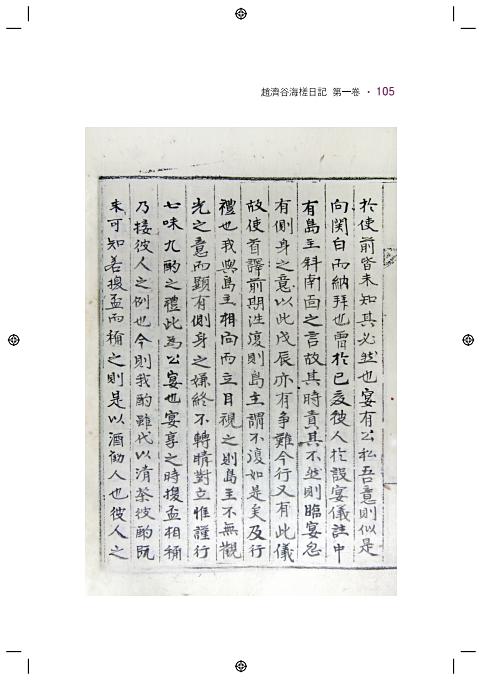 趙濟谷海槎日記 第一卷 · 105
於使前皆未知其必然也宴有公私吾意則似是
向関白而納拜也曾於己亥彼人於設宴儀註中
有島主斜南面之言故其時責其不然則臨宴忽
有側身之意以此戊辰亦有爭難今行又有此儀
故使首譯前期往復則島主謂不復如是矣及行
禮也我與島主相向而立目視之則島主不無觀
光之意而顯有側身之嫌終不轉睛對立惟謹行
七味九酌之禮此為公宴也宴享之時擡盃相稱
乃接彼人之例也今則我酌雖代以清茶彼酌既
未可知若擡盃而稱之則是以酒勸人也彼人之